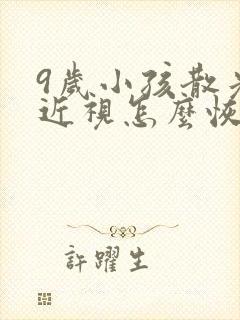 9歲小孩散
近視怎麼恢
許躍生